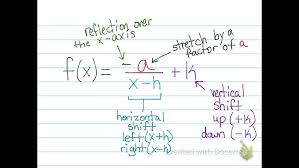 reflection over
the x-axis
stretch by a
factor of a
f(x) = -a / x-h + k
horizontal
shift
left (x+h)
right (x-h)
vertical
shift
up (+k)
down (-k)
Created with Doceri